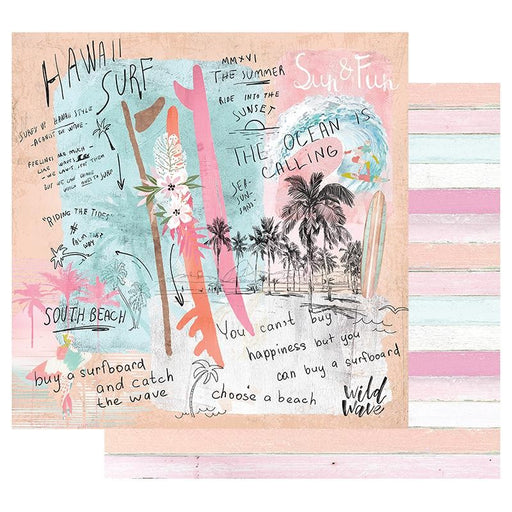 HAWAII
SURF
MMXVI
THE SUMMER
RIDE INTO THE
SUNSET
Sun & Fun
THE OCEAN IS
CALLING
HAWAII STYLE
FEELINGS ARE MUCH
LIKE WAVES
WE CAN'T
"RIDING THE TIDES"
PALM TREE
WAY
SOUTH BEACH
buy a surfboard
and catch
the wave
choose a beach
You can't buy
happiness but you
can buy a surfboard
Wild
Wave